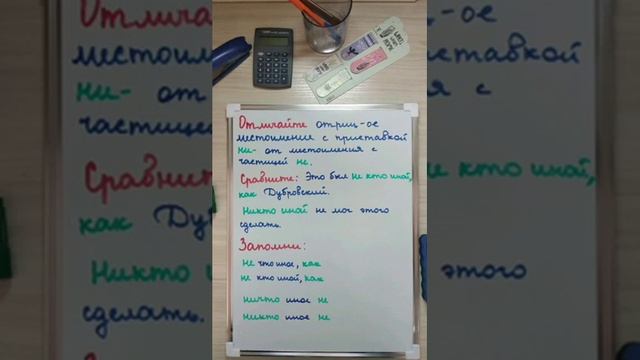 Отличайте отриц-ое
местоимение с приставкой
ни- от местоимения с
частицей не.
Сравните: Это был не кто иной,
как Дубровский.
Никто иной не мог этого
сделать.
Запомни:
не что иное, как
не кто иной, как
ничто иное не
никто иное не